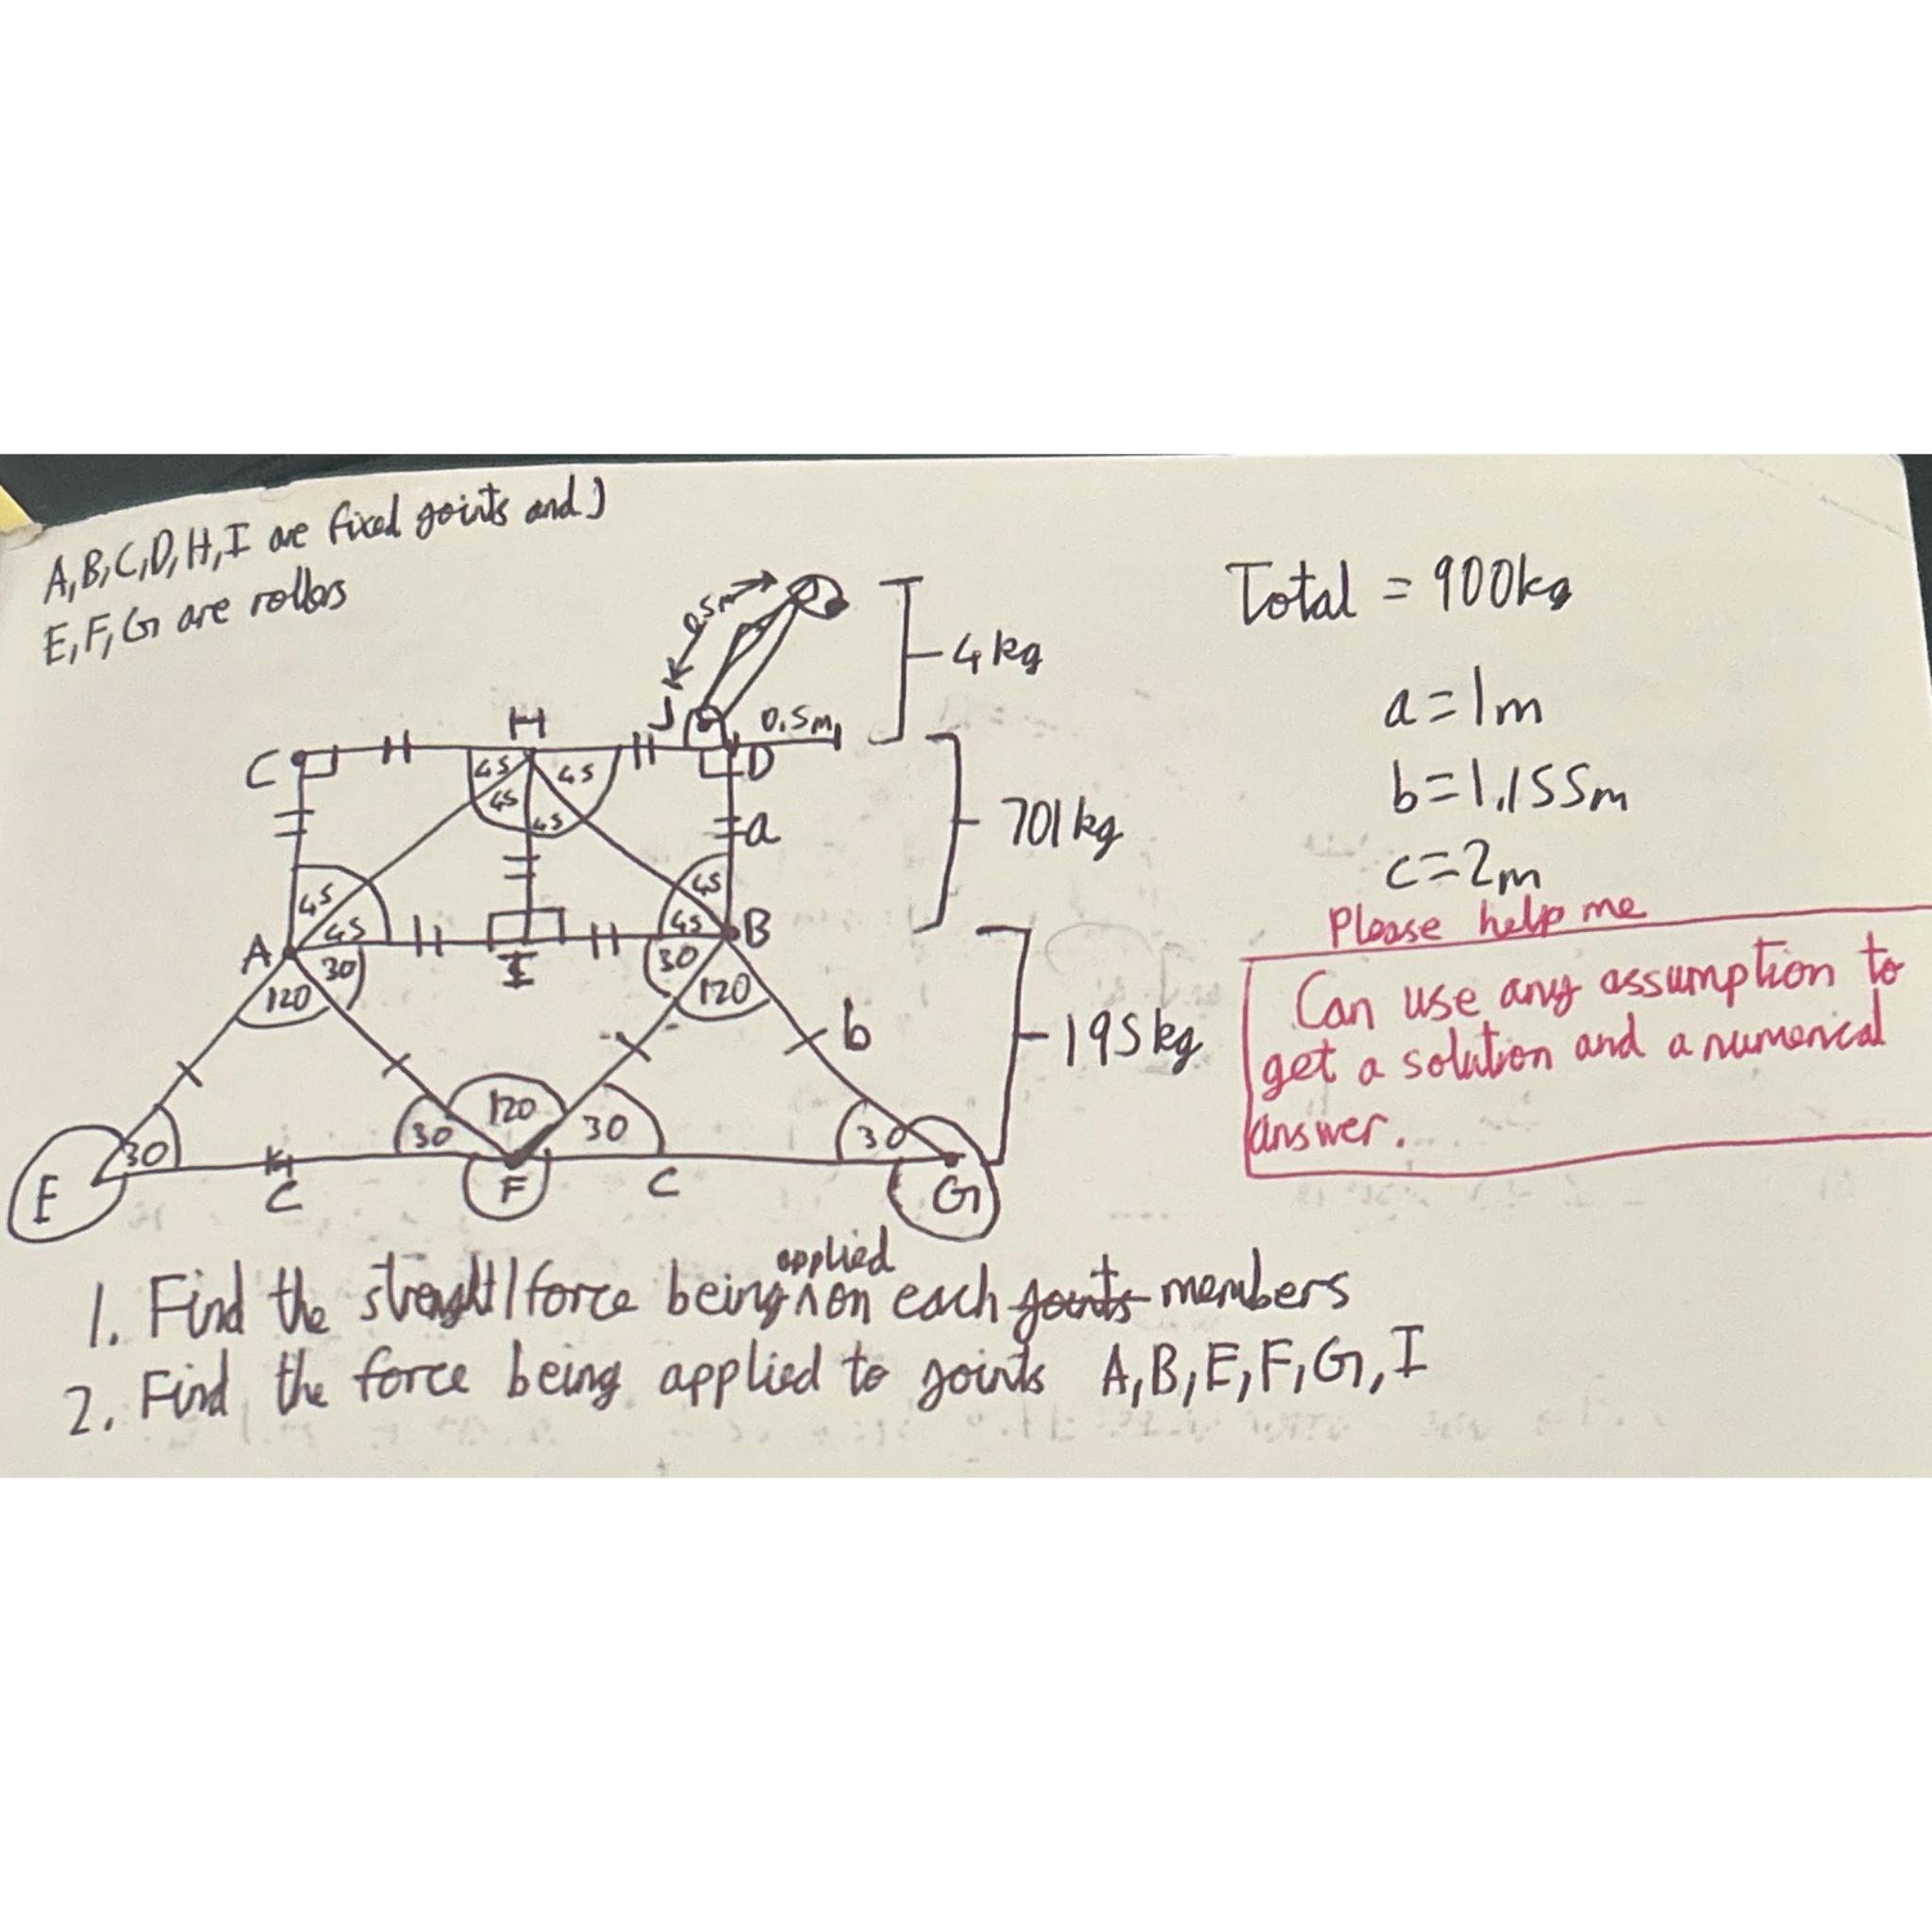 A,B,C,D,H,I are fixed joints and J
E,F,G are rollers
Total = 900kg
0.5m
4 kg
a = 1m
H
J
0.5m
C
45
45
D
b = 1.155m
45
45
a
701 kg
c = 2m
45
45
Please help me
A
45
45
B
I
30
30
Can use any assumption to
120
120
get a solution and a numerical
b
195kg
answer.
30
30
120
30
30
E
C
F
C
G
applied
1. Find the /force being ^ on each joints members
2. Find the force being applied to joints A,B,E,F,G,I